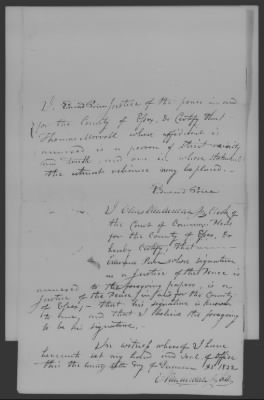 I, David Price Justice of the peace in and
for the County of Essex, do Certify that
Thomas Morrell whose affidavit is
annexed is a person of strict veracity
and truth, and one in whose statement
the utmost reliance may be placed.
David Price
I Clerk of
the Court of Common Pleas
for the County of Essex, do
hereby Certify, that
Price whose signature
is a Justice of the Peace is
annexed to the foregoing papers, is a
Justice of the Peace in and for the County
of Essex, that his signature is known
to me, and that I believe the foregoing
to be his signature.
In witness whereof I have
hereunto set my hand and seal of office
this the day of 1832
Clk.